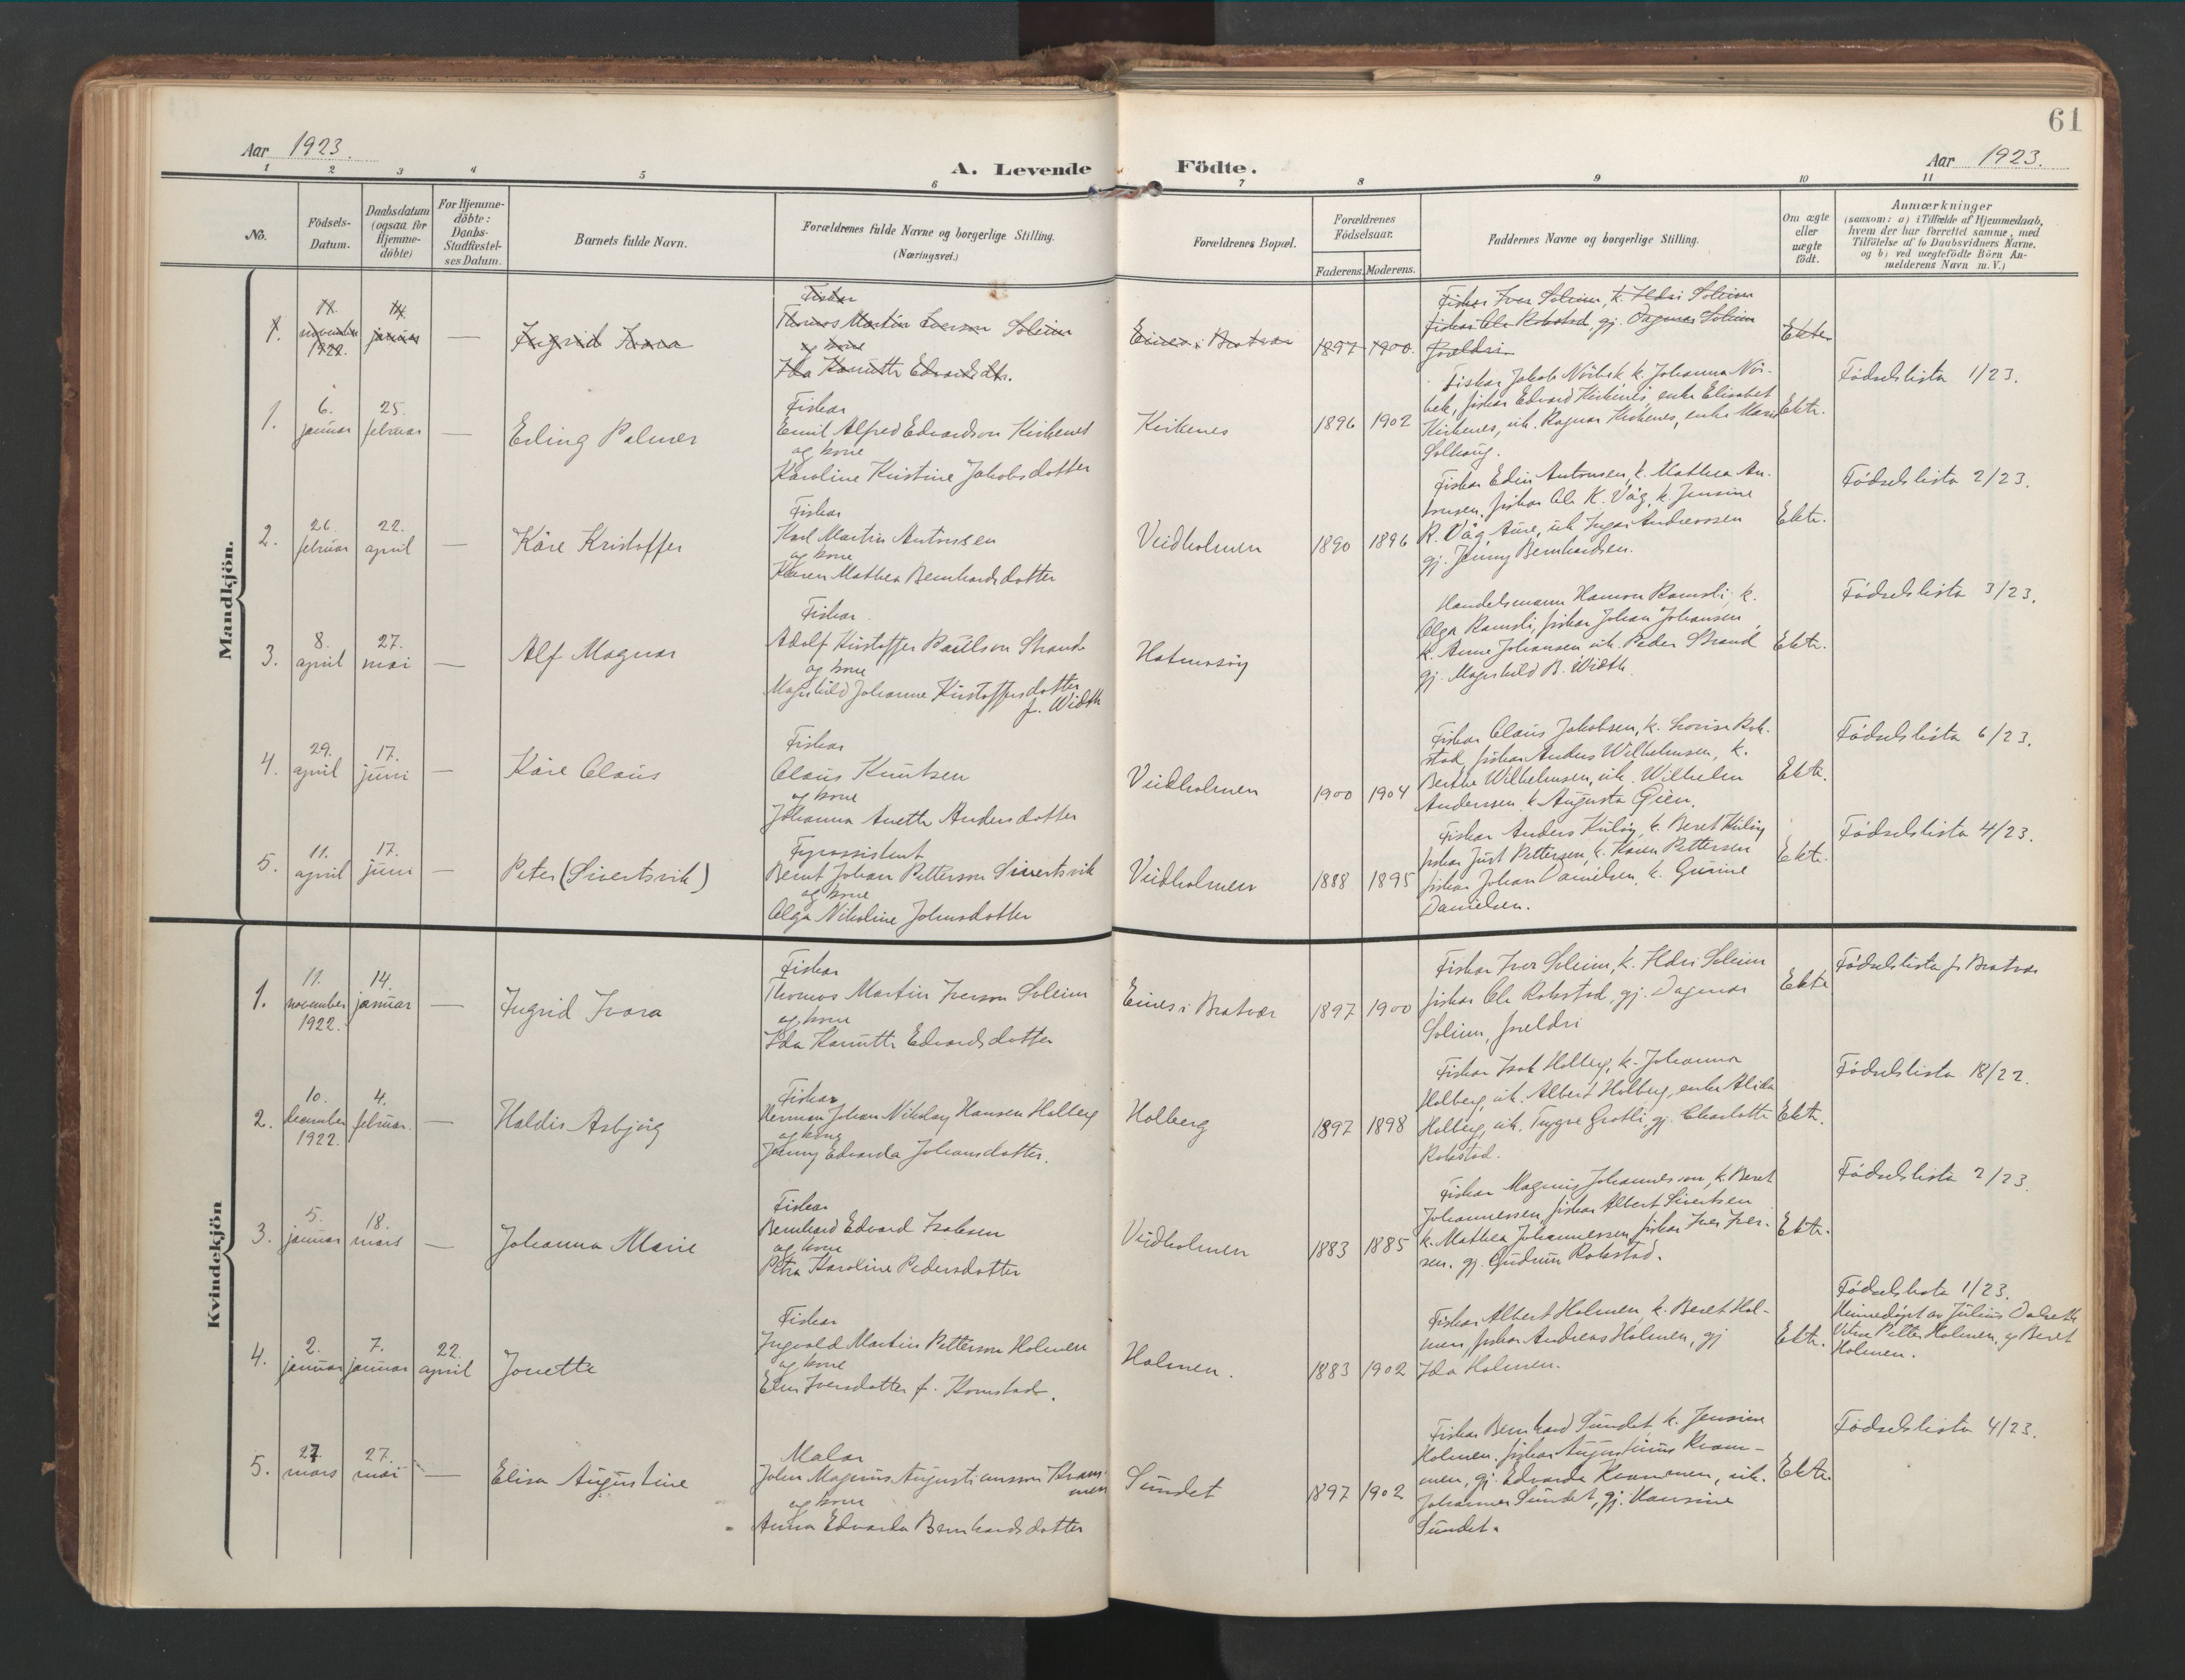 61
Aar 1923.
A. Levende Födte.
Aar 1923.
1 2 3 4 5 6 7 8 9 10 11
No.
Födsels-
Datum.
Daabsdatum
(ogsaa for
Hjemme-
döbte)
For Hjemme-
döbte:
Daabs-
Stadfæstel-
ses Datum.
Barnets fulde Navn.
Forældrenes fulde Navne og borgerlige Stilling.
(Næringsvei.)
Forældrenes Bopæl.
Forældrenes
Födselsaar.
Faderens. Moderens.
Faddernes Navne og borgerlige Stilling.
Om ægte
eller
uægte
födt.
Anmærkninger
(saasom: a) i Tilfælde af Hjemmedaab,
hvem der har forrettet samme, med
Tilföielse af to Daabsvidners Navne,
og b) ved uægtefödte Börn An-
melderens Navn m. V.)
Mandkjön.
1. 11. november 1922. 14. januar — Ingrid Ivara
Fiskar
Thomas Martin Iverson Soleim
og kone
Ida Hanutte Edvardsdtr.
Eines i Bratvær 1897 1900.
Fiskar Iver Soleim, k. Hdri Soleim
fiskar Ole Rokstad, gj. Dagmar Soleim
foreldri
Ekte
1. 6. januar 25. februar — Erling Palmer
Fiskar
Emil Alfred Edvardson Kirkenes
og kone
Karoline Kristine Jakobsdotter
Kirkenes 1896 1902
Fiskar Jakob Nörbek k. Johanna Nör-
bek, fiskar Edvard Kirkenes, enke Elisabet
Kirkenes, uk. Ragnar Kirkenes, enke Marie
Solhaug.
Ekte.
Födselslista 1/23.
2. 26. februar 22. april — Kåre Kristoffer
Fiskar
Karl Martin Antonsen
og kone
Karen Mathea Bernhardsdotter
Veidholmen 1890 1896
Fiskar Edin Antonsen, k. Mathea An-
tonsen, fiskar Ole K. Våg, k. Jensine
K. Våg, Aure, uk Inga Andreassen
gj. Jenny Bernhardsen.
Ekte.
Födselslista 2/23.
3. 8. april 27. mai — Alf Magnar
Fiskar.
Adolf Kristoffer Paulson Strand
og kone
Magnhild Johanne Kristoffersdotter
f. Width
Hatmosöy
Handelsmann Hamon Ramsli, k.
Olga Ramsli, fiskar Johan Johansen,
k. Anne Johansen uk. Peder Strand
gj. Magnhild B. Width.
Ekte.
Födselslista 3/23.
4. 29. april 17. juni — Kåre Claus
Fiskar
Claus Knutsen
og kone
Johanna Anette Andersdotter
Veidholmen 1900 1904
Fiskar Claus Jakobsen, k. Lovise Rok-
stad, fiskar Anders Wilhelmsen, k.
Berthe Wilhelmsen, uk. Wilhelm
Anderssen k. Augusta Qien.
Ekte.
Födselslista 6/23.
5. 11. april 17. juni — Peter (Sivertsvik)
Fyrassistent
Bernt Johan Petterson Sivertsvik
og kone
Olga Nikoline Johnsdotter
Veidholmen 1888 1895
Fiskar Anders Kulöy, k. Beret Kulöy
fiskar Just Pettersen, k. Karen Pettersen
fiskar Johan Danielsen, k. Gurine
Danielsen.
Ekte.
Födselslista 4/23.
Kvindekjön
1. 11. november 1922. 14. januar — Ingrid Ivara
Fiskar
Thomas Martin Iverson Soleim
og kone
Ida Hanutte Edvardsdotter
Eines i Bratvær 1897 1900
Fiskar Iver Soleim, k. Hdri Soleim
fiskar Ole Rokstad, gj. Dagmar
Soleim, foreldri
Ekte
Födselslista fr Bratvær
2. 10. december 1922. 4. februar. — Haldis Asbjörg
Fiskar
Herman Johan Nikolay Hansen Holberg
og kone
Jenny Edvarda Johansdotter.
Holberg 1897 1898
Fiskar Isak Holberg, k. Johanna
Holberg, uk. Albert Holberg, enke Alida
Holberg, uk. Trygve Grotli, gj. Charlotte
Rokstad.
Ekte.
Födselslista 18/22.
3. 5. januar 18. mars — Johanna Marie
Fiskar
Bernhard Edvard Isaksen
og kone
Petra Karoline Pedersdotter
Veidholmen 1883 1885
Fiskar Magnus Johannessen, k. Beret
Johannessen, fiskar Albert Sivertsen
k. Mathea Johannessen, fiskar Iver Iver-
sen, gj. Gudrun Rokstad.
Ekte.
Födselslista 2/23.
4. 2. januar 7. januar 22. april Jonette
Fiskar
Ingvald Martin Petterson Holmen
og kone
Elen Iversdotter f. Kornstad.
Holmen. 1883 1902
Fiskar Albert Holmen, k. Beret Hol-
men, fiskar Andreas Holmen, gj
Ida Holmen.
Ekte.
Födselslista 1/23.
Heimedöpt av Julius Dalseth
Vitne Petter Holmen, og Beret
Holmen.
5. 27 mars 27. mai — Elisa Augustine
Malar
John Magnus Augustinusson Kram-
men
og kone
Anna Edvarda Bernhardsdotter
Sundet 1897 1902
Fiskar Bernhard Sundet, k. Jensine
Holmen, fiskar Augustinus Kram-
men, gj. Edvarda Krammen, uk.
Johannes Sundet, gj. Hansine
Sundet.
Ekte.
Födselslista 4/23.